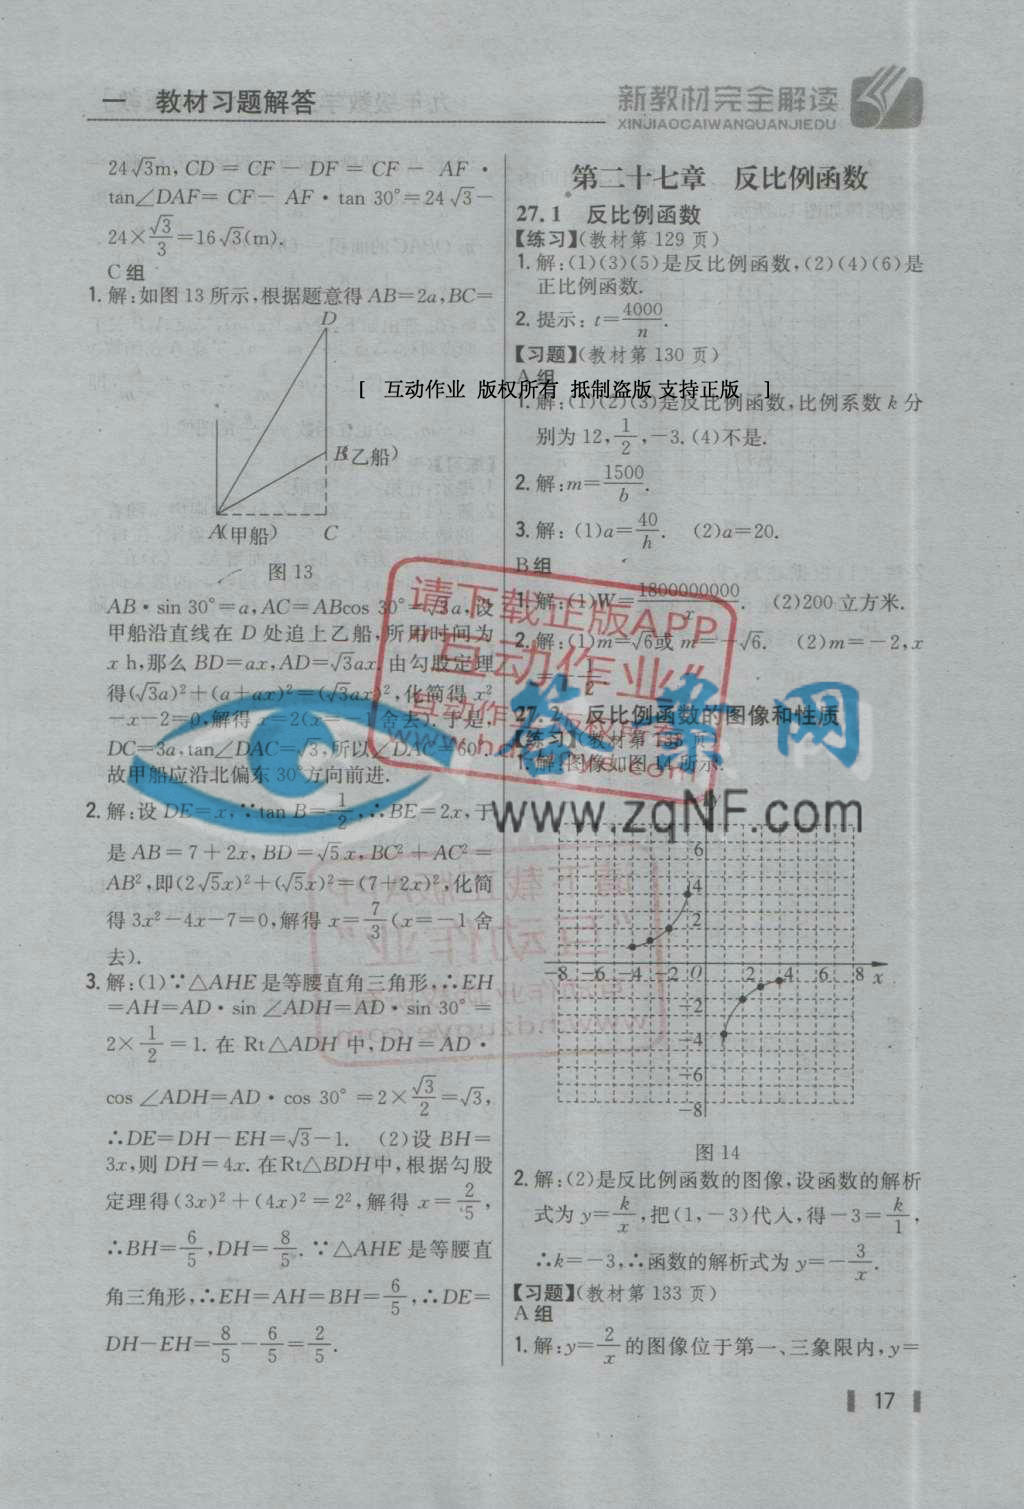 一 教材习题解答
新教材完全解读
XINJIAOCAIWANQUANJIEDU
24√3m, CD = CF − DF = CF − AF·
tan∠DAF= CF − AF·tan 30°=24√3−
24×√3/3=16√3(m).
C组
1. 解:如图13所示,根据题意得 AB=2a,BC=
D
B(乙船)
A(甲船)
C
图13
AB·sin 30°=a,AC=ABcos 30°=√3a,设
甲船沿直线在 D 处追上乙船,所用时间为
x h,那么 BD=ax,AD=√3ax.由勾股定理
得(√3a)²+(a+ax)²=(√3ax)²,化简得 x²
−x−2=0,解得 x=2(x=−1舍去).于是,
DC=3a,tan∠DAC=√3,所以∠DAC=60°.
故甲船应沿北偏东30°方向前进.
2. 解:设 DE=x,∵tan B=1/2,∴BE=2x,于
是 AB=7+2x,BD=√5x,BC²+AC²=
AB²,即(2√5x)²+(√5x)²=(7+2x)²,化简
得3x²−4x−7=0,解得 x=7/3(x=−1舍
去).
3. 解:(1)∵△AHE是等腰直角三角形,∴EH
=AH=AD·sin∠ADH=AD·sin 30°=
2×1/2=1.在 Rt△ADH 中,DH=AD·
cos∠ADH=AD·cos 30°=2×√3/2=√3,
∴DE=DH−EH=√3−1. (2)设 BH=
3x,则 DH=4x.在Rt△BDH中,根据勾股
定理得(3x)²+(4x)²=2²,解得 x=2/5,
∴BH=6/5,DH=8/5.∵△AHE是等腰直
角三角形,∴EH=AH=BH=6/5,∴DE=
DH−EH=8/5−6/5=2/5.
第二十七章 反比例函数
27.1 反比例函数
【练习】(教材第129页)
1. 解:(1)(3)(5)是反比例函数,(2)(4)(6)是
正比例函数.
2. 提示:t=4000/n.
【习题】(教材第130页)
A组
[ 互动作业 版权所有 抵制盗版 支持正版 ]
1. 解:(1)(2)(3)是反比例函数,比例系数 k 分
别为12,1/2,−3.(4)不是.
2. 解:m=1500/b.
3. 解:(1)a=40/h. (2)a=20.
B组
1. 解:(1)W=1800000000/x. (2)200立方米.
2. 解:(1)m=√6或 m=−√6. (2)m=−2,x
=−1/2.
27.2 反比例函数的图像和性质
【练习】(教材第133页)
1. 解:图像如图14所示.
请下载正版APP
“互动作业”
www.zqNF.com
y
6
4
2
−8 −6 −4 −2 O 2 4 6 8 x
−2
−4
−6
−8
图14
2. 解:(2)是反比例函数的图像,设函数的解析
式为 y=k/x,把(1,−3)代入,得−3=k/1,
∴k=−3,∴函数的解析式为 y=−3/x.
【习题】(教材第133页)
A组
1. 解:y=2/x的图像位于第一、三象限内,y=
17